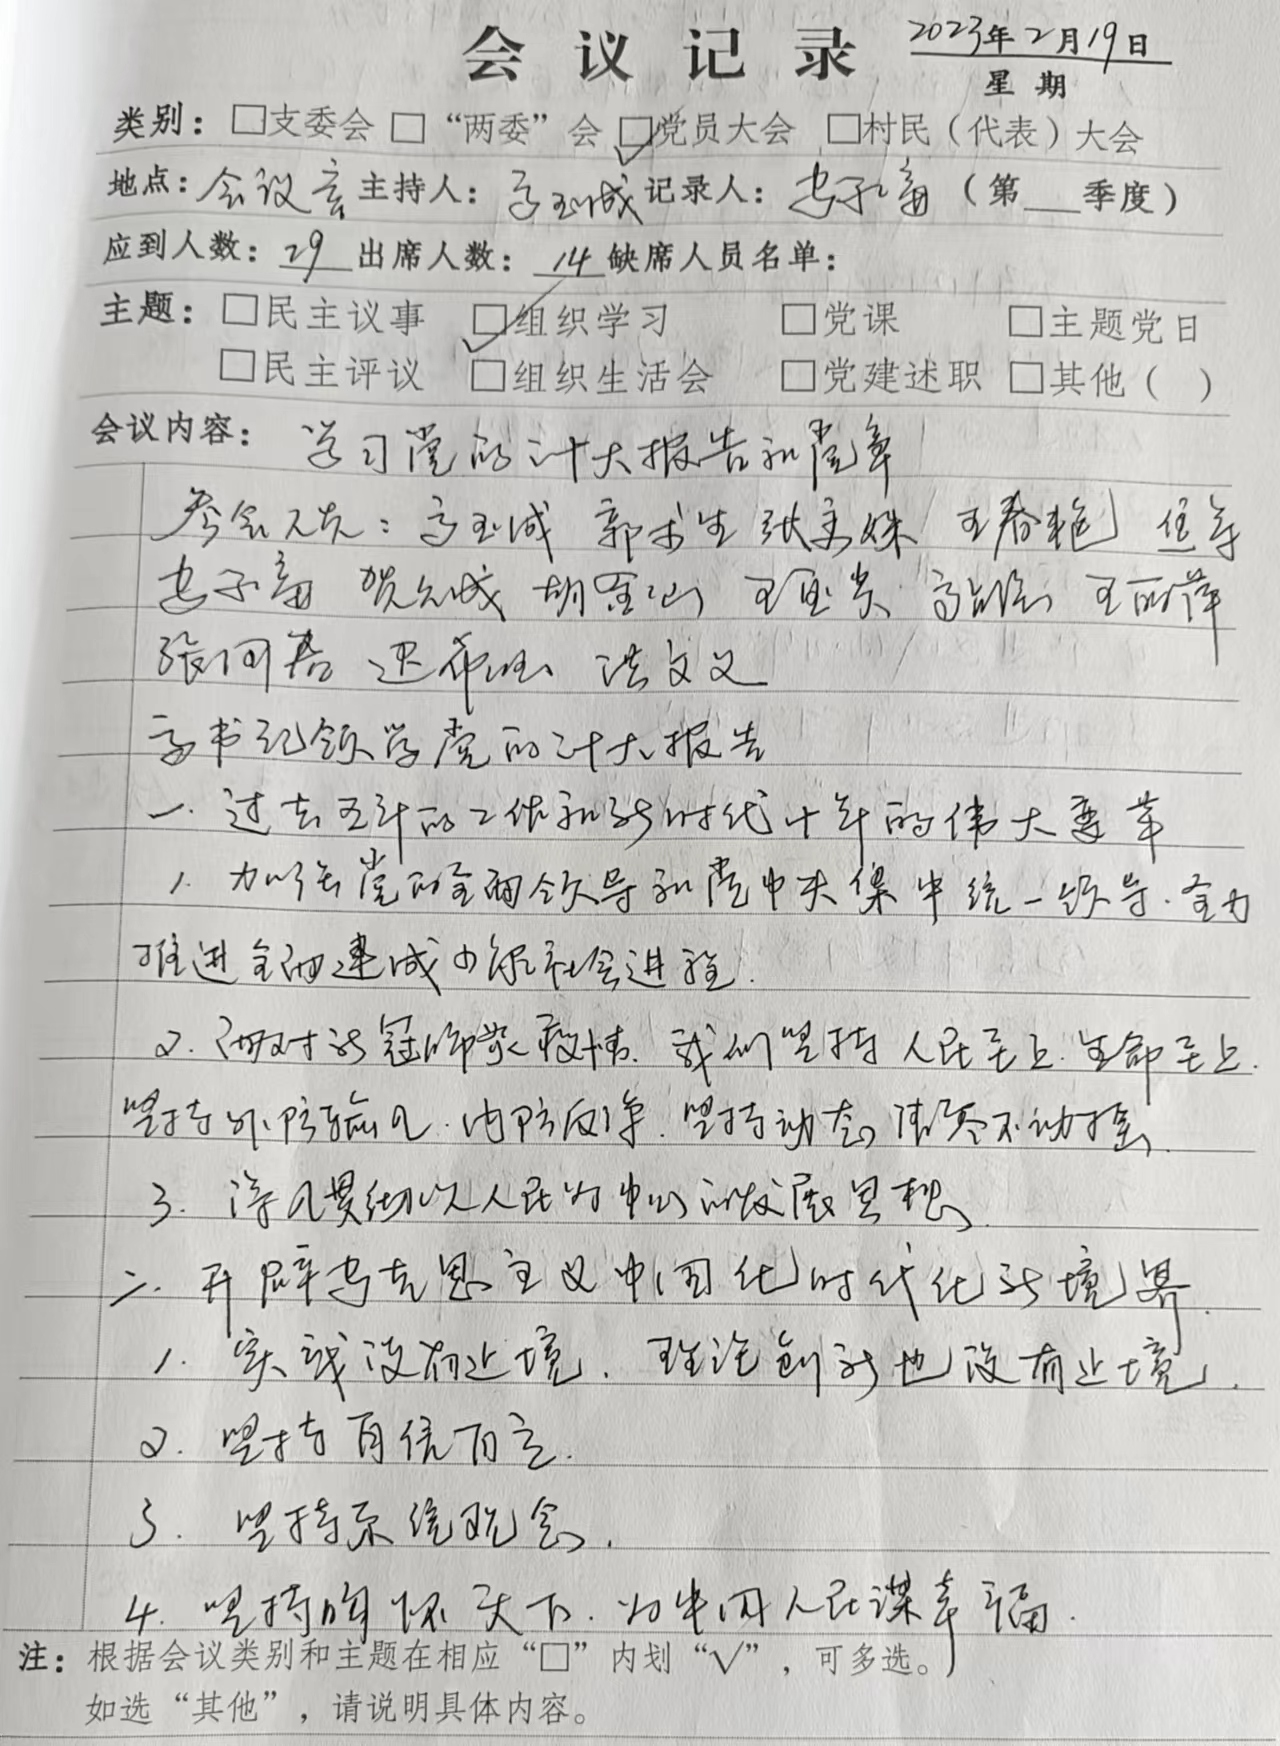 会议记录 2023年2月19日
星期
类别：□支委会 □“两委”会 ☑党员大会 □村民（代表）大会
地点：会议室 主持人：高玉成 记录人：（第___季度）
应到人数：29 出席人数：14 缺席人员名单：
主题：□民主议事 ☑组织学习 □党课 □主题党日
□民主评议 □组织生活会 □党建述职 □其他（ ）
会议内容：学习党的二十大报告和党章
参会人员：高玉成 郭术生 王春艳
胡金山 王玉贵 王丽萍
洪文义
高书记领学党的二十大报告
一. 过去五年的工作和新时代十年的伟大变革
1. 加强党的全面领导和党中央集中统一领导. 全力
推进全面建成小康社会进程.
2. 面对新冠肺炎疫情. 我们坚持人民至上. 生命至上.
坚持外防输入. 内防反弹. 坚持动态清零不动摇.
3. 深入贯彻以人民为中心的发展思想.
二. 开辟马克思主义中国化时代化新境界.
1. 实践没有止境. 理论创新也没有止境.
2. 坚持自信自立.
3. 坚持系统观念.
4. 坚持胸怀天下. 为中国人民谋幸福.
注：根据会议类别和主题在相应“□”内划“√”，可多选。
如选“其他”，请说明具体内容。